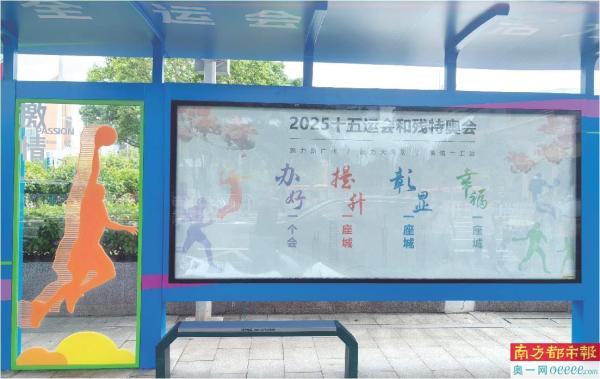 全运会
激情
PASSION
2025十五运会和残特奥会
办好一个会
提升一座城
彰显一座城
幸福一座城
南方都市报
奥一网oeeee.com